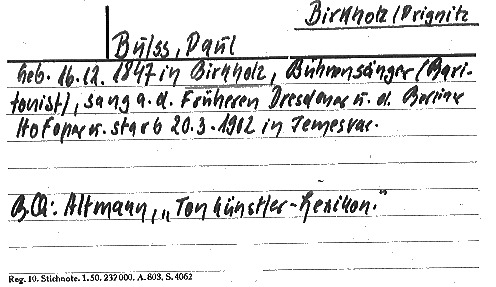 Birkholz/Prignitz
Bulss, Paul
Geb. 16.12.1847 in Birkholz, Bühnensänger (Bari-
tonist), sang a. d. Früheren Dresdener u. d. Berliner
Hofoper u. starb 20.3.1902 in Temesvar.
B.Qu: Altmann, „Tonkünstler-Lexikon."
Reg. 10. Stichnote. 1. 50. 232000. A. 803. S. 4062